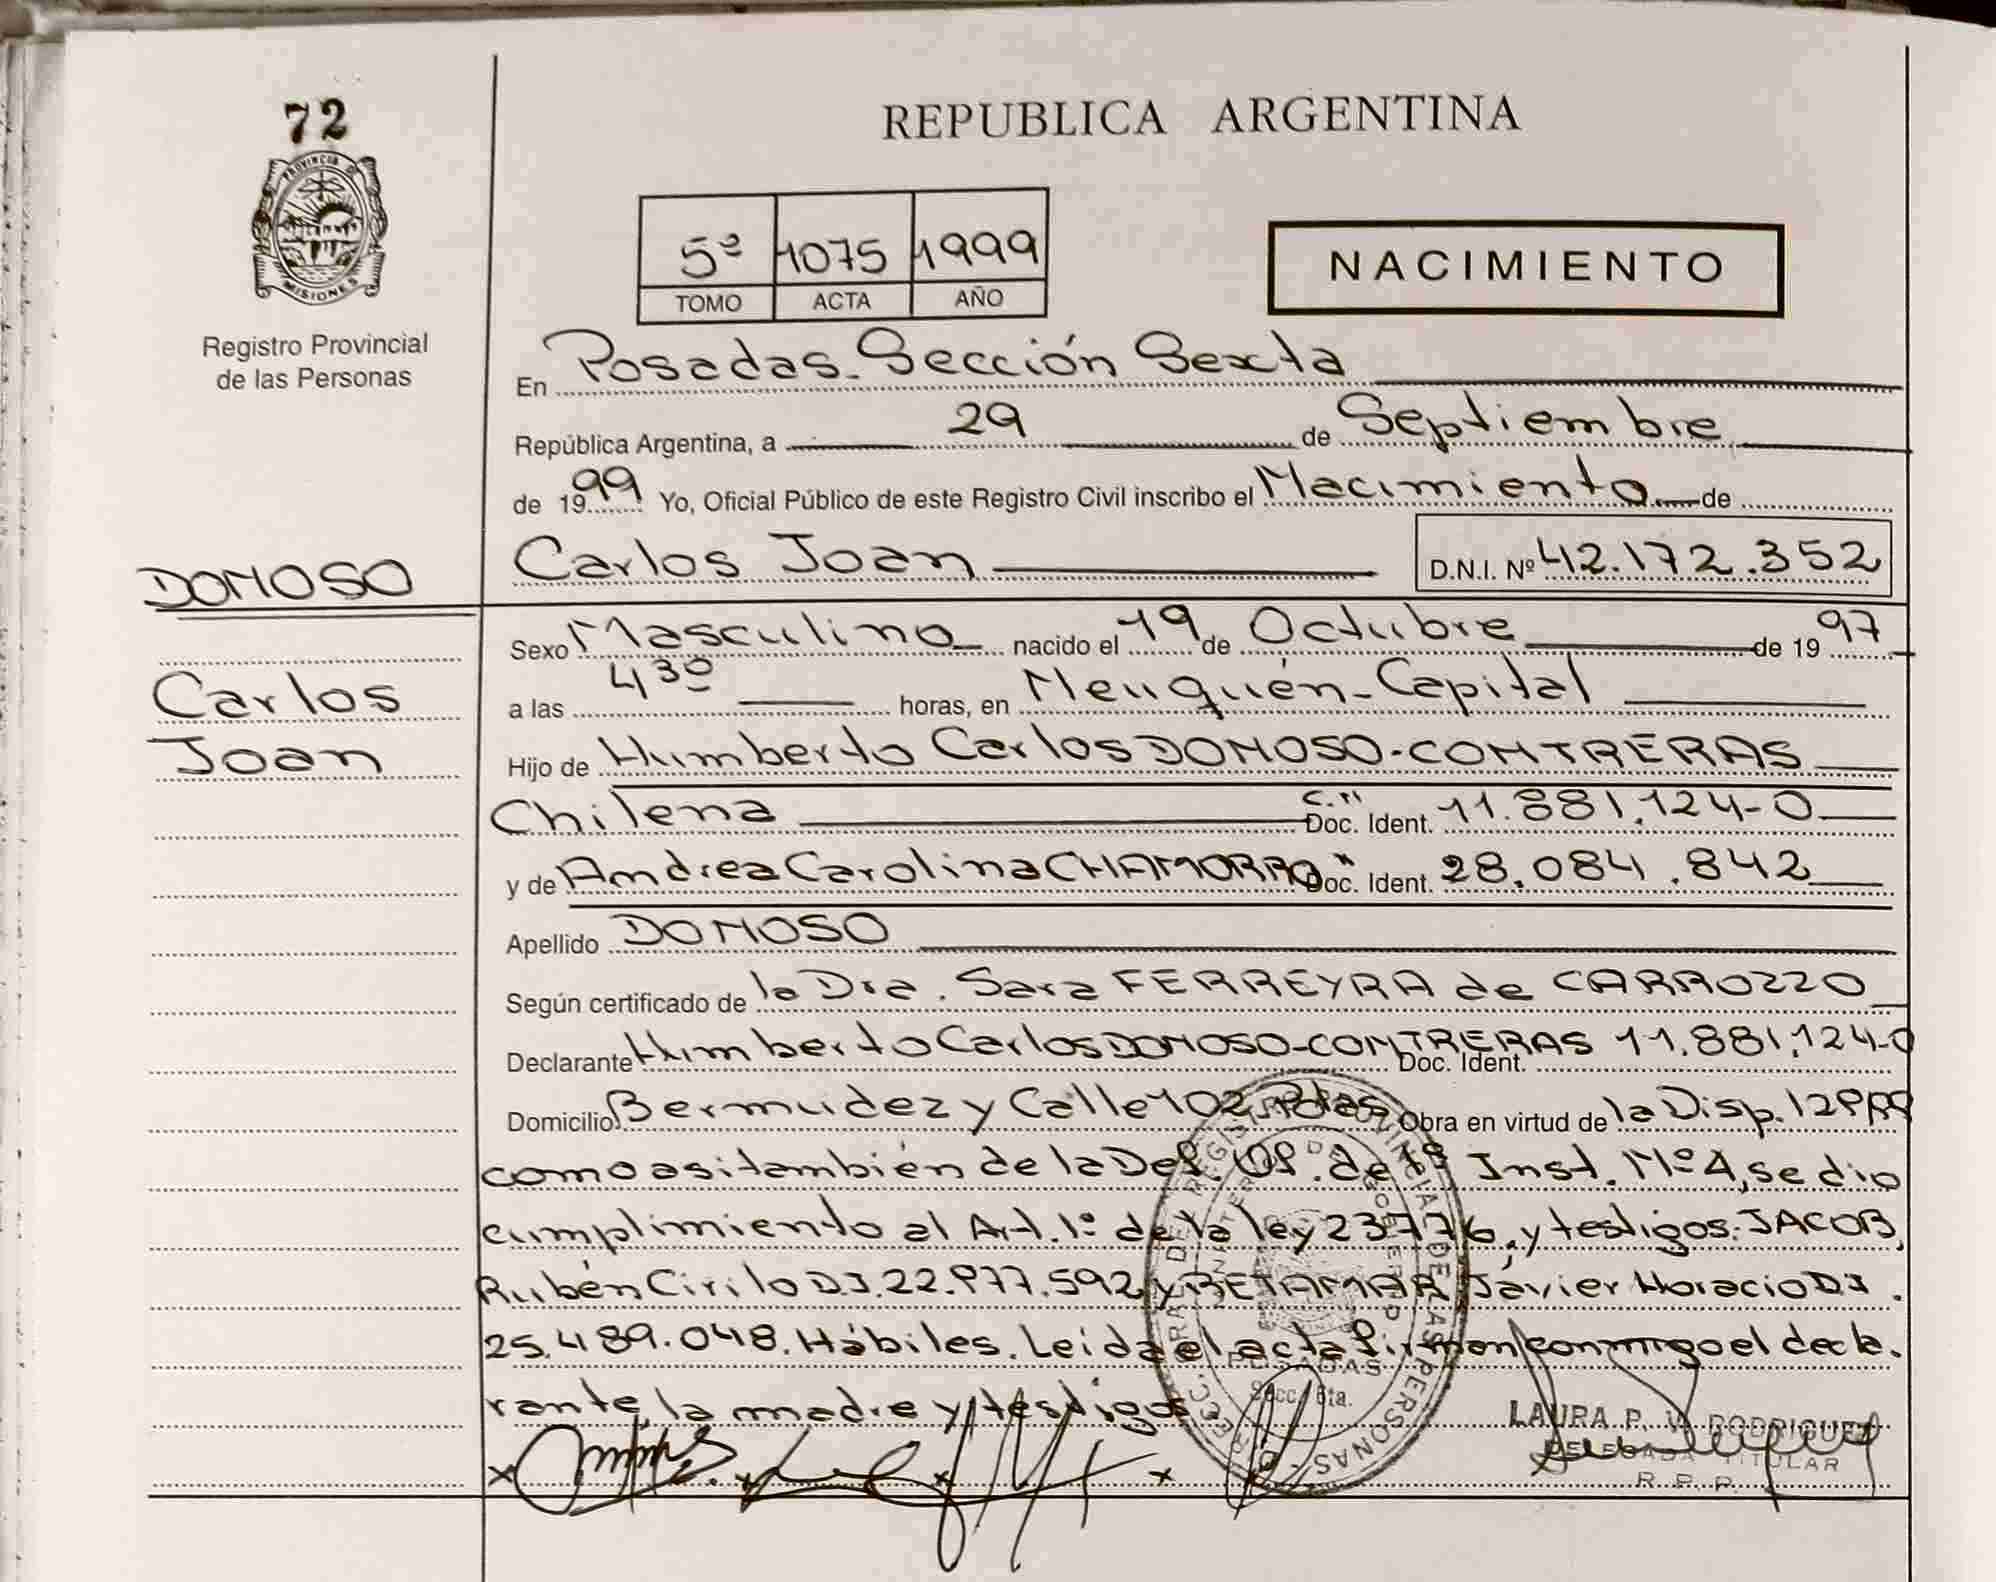 72
PROVINCIA D
MISIONES
Registro Provincial
de las Personas
REPUBLICA ARGENTINA
5º 1075 1999
TOMO ACTA AÑO
NACIMIENTO
En Posadas. Sección Sexta
República Argentina, a 29 de Septiembre
de 1999 Yo, Oficial Público de este Registro Civil inscribo el Nacimiento de
Carlos Joan D.N.I. Nº 42.172.352
DONOSO
Sexo Masculino nacido el 19 de Octubre de 1997
Carlos
a las 4 30 horas, en Neuquén-Capital
Joan
Hijo de Humberto Carlos DONOSO-CONTRERAS
Chilena Doc. Ident. 11.881.124-0
y de Andrea Carolina CHAMORRO Doc. Ident. 28.084.842
Apellido DONOSO
Según certificado de la Dra. Sara FERREYRA de CARROZZO
Declarante Humberto Carlos DONOSO-CONTRERAS Doc. Ident. 11.881.124-0
Domicilio Bermudez y Calle 102 Pdas Obra en virtud de la Disp.
como asi también de la Def. Of. de Inst. Nº 4, se dio
cumplimiento al Art. 1º de la ley 23776, y testigos: JACOB,
Rubén Cirilo D.I. 22.977.592 y BETAMAR Javier Horacio D.I.
25.489.048. Hábiles. Leida el acta firman conmigo el decla.
rante, la madre y testigos.
POSADAS
Secc. 6ta.
LAURA P. V. RODRIGUEZ
DELEGADA TITULAR
R. P. P.